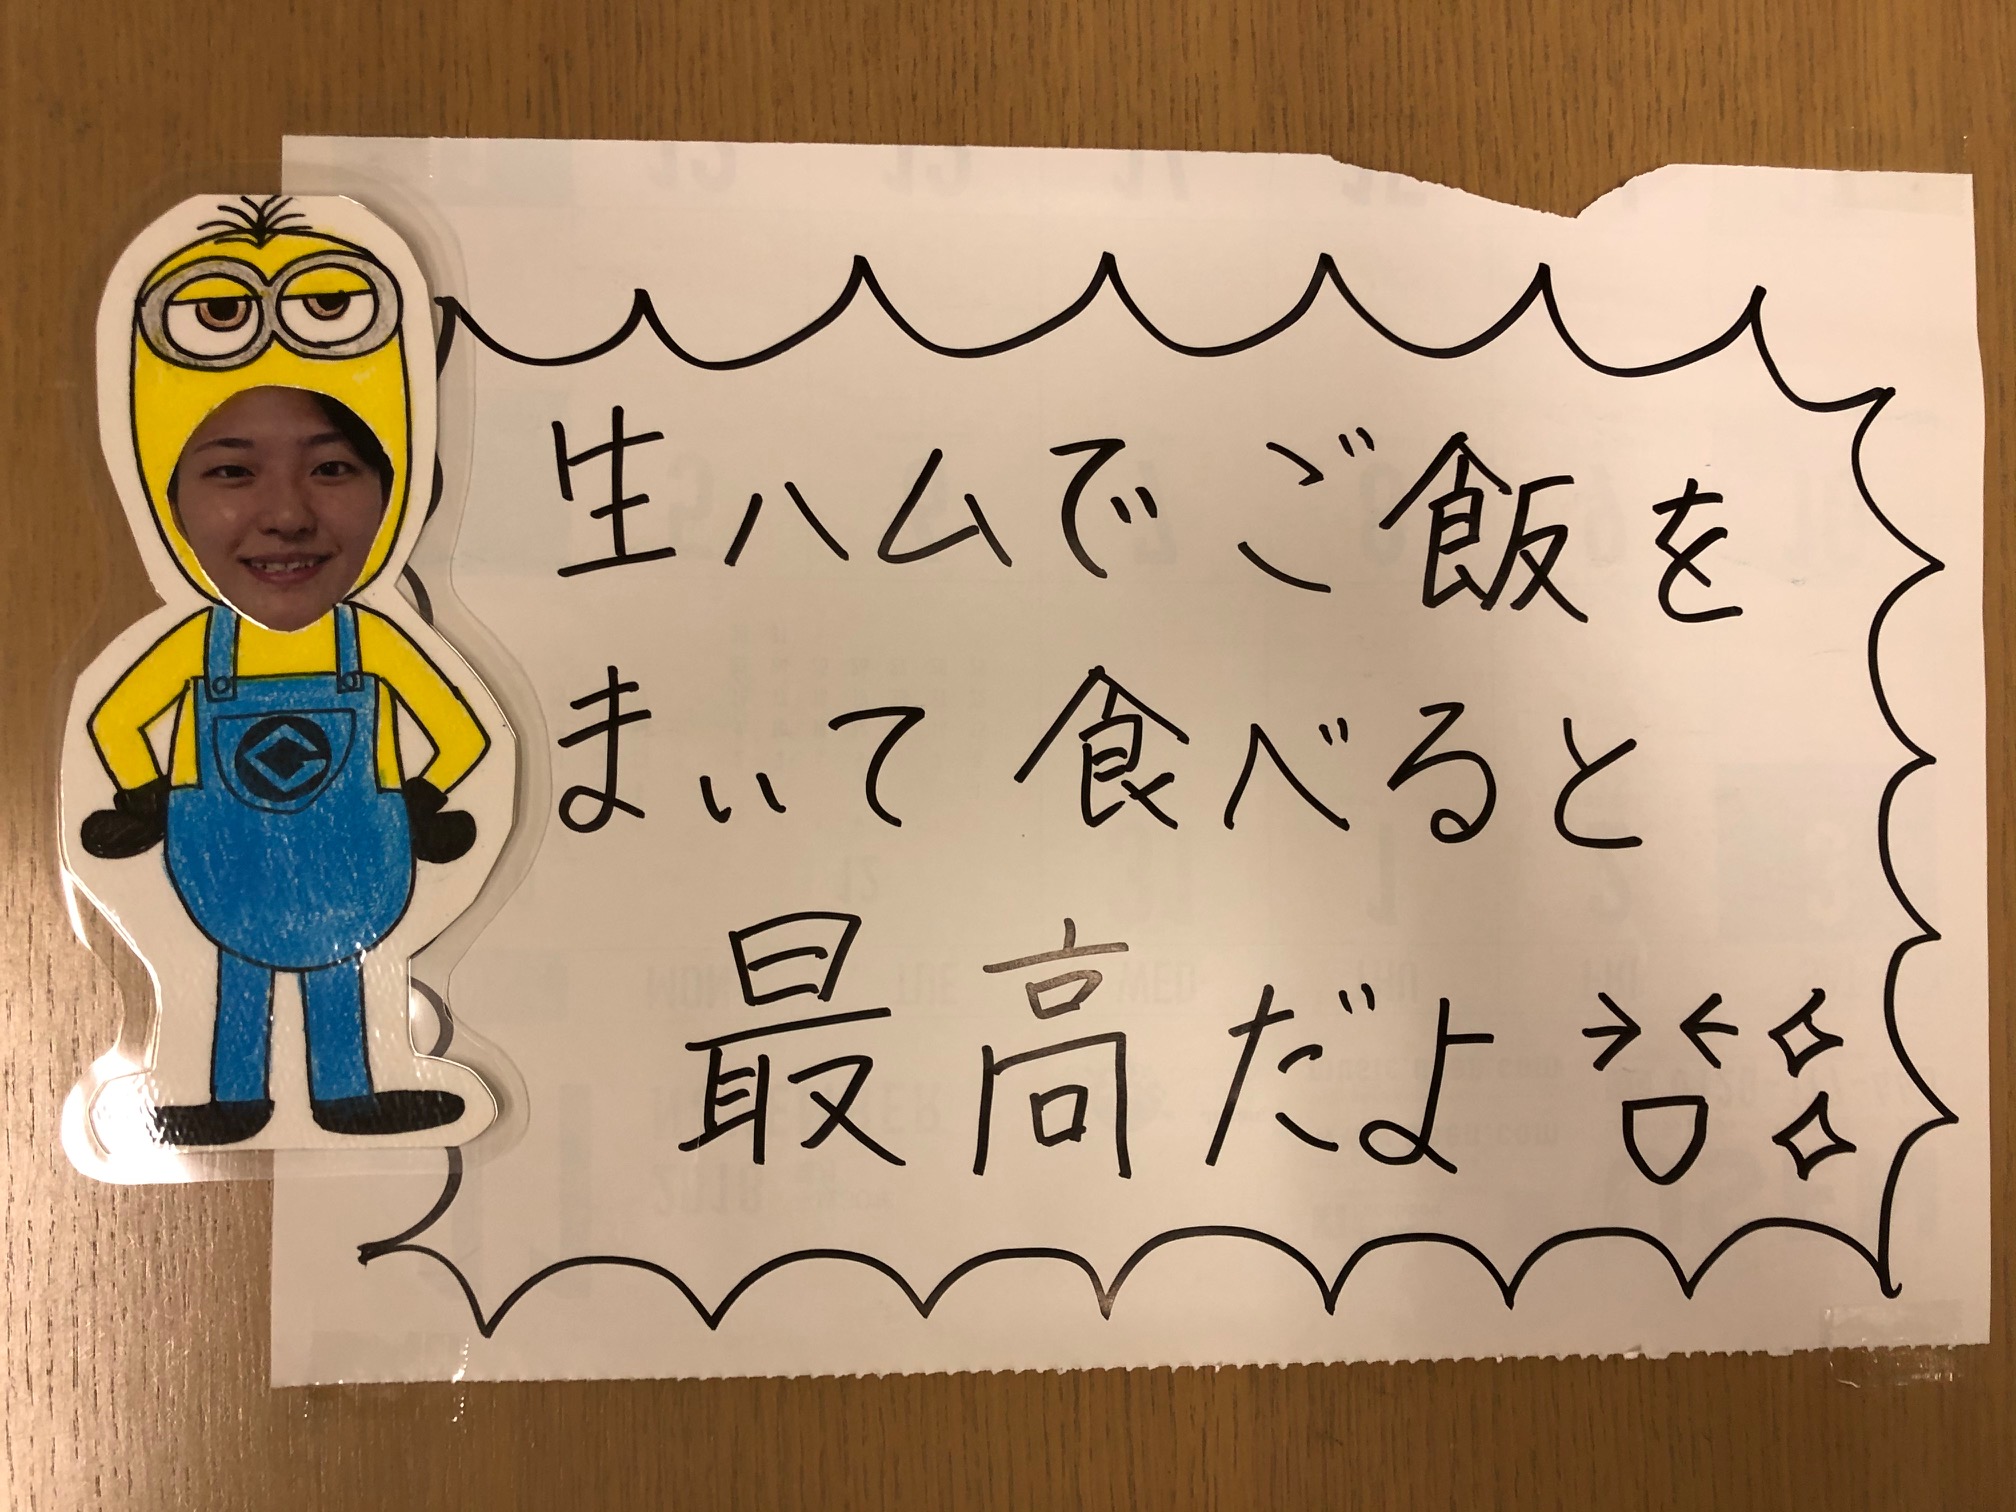 生ハムでご飯を
まいて食べると
最高だよ